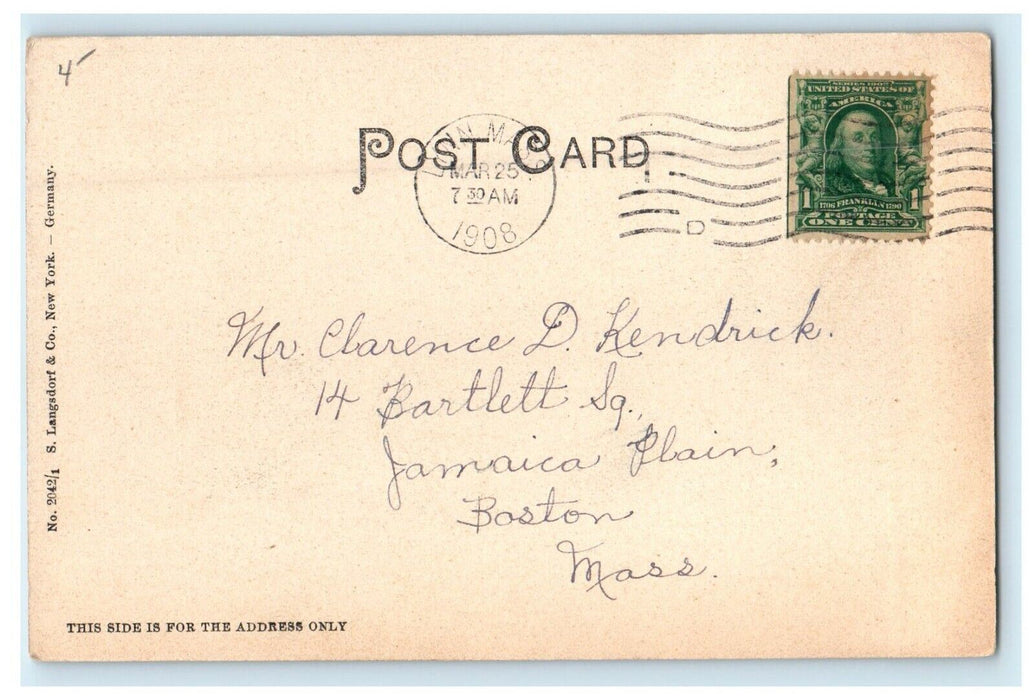 4
POST CARD
LYNN MASS
MAR 25
7 30 AM
1908
D
SERIES 1902
UNITED STATES OF
AMERICA
1 1706 FRANKLIN 1790 1
POSTAGE
ONE CENT
No. 2042/1 S. Langsdorf & Co., New York. – Germany.
Mr. Clarence D. Kendrick.
14 Bartlett Sq.,
Jamaica Plain,
Boston
Mass.
THIS SIDE IS FOR THE ADDRESS ONLY